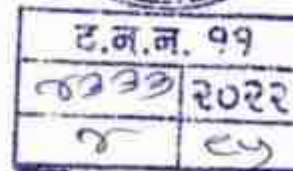 ट.न.न. ११
४३३३ २०२२
४ ८५